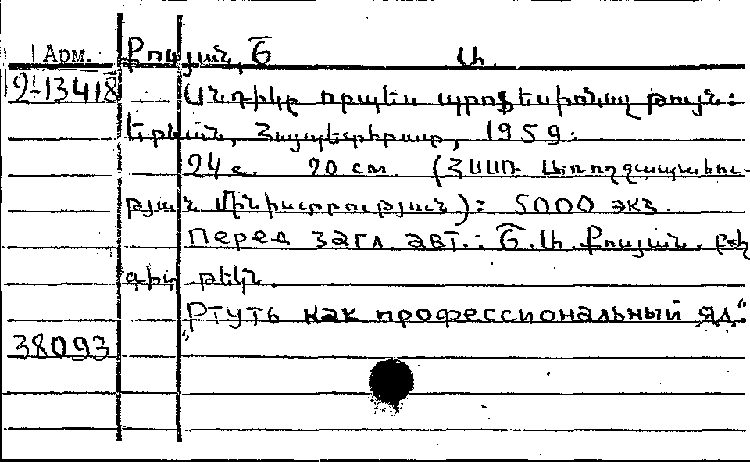 Арм. Քոյան, Շ Ա.
2-13418 Սնդիկը որպես պրոֆեսիոնալ թույն:
Երևան, Հայպետհրատ, 1959:
24 с. 20 см. (ՀՍՍՌ Առողջապահու-
թյան Մինիստրություն): 5000 экз.
Перед загл. авт.: Շ. Ա. Քոյան.
գիտ թեկն.
„Ртуть как профессиональный яд."
38093